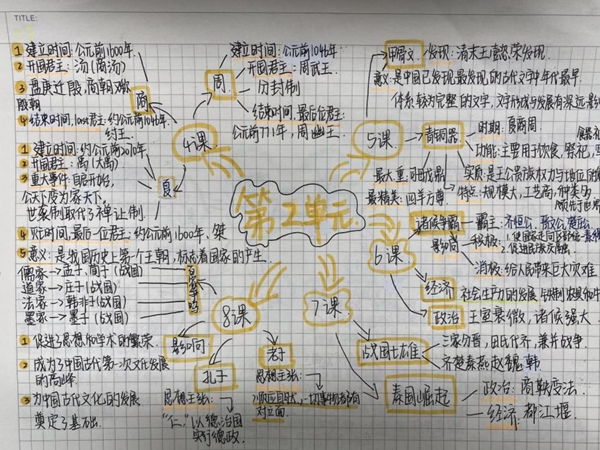 TITLE:
①建立时间:公元前1600年.
②开国君主:汤(商汤)
③盘庚迁殷,商朝又称
殷朝
④结束时间,last君主:约公元前1046年,
纣王.
商
建立时间:公元前1046年
开国君主:周武王.
分封制
结束时间,最后一位君主:
公元前771年,周幽王.
周
4课
①建立时间:约公元前2070年
②开国君主:禹(大禹)
③重大事件:自启开始,
公天下变为家天下,
世袭制取代了禅让制.
④灭亡时间,最后一位君主:约公元前1600年,桀
⑤意义:是我国历史上第一个王朝,标志着国家的产生.
夏
甲骨文
发现:清末王懿荣发现
意义:是中国已发现最发现的古代文字中年代最早.
体系较为完整的文字,文字形成与发展有深远影
5课
青铜器
时期:夏商周
功能:主要用于饮食,祭祀,
最大,重:司母戊鼎
最精美:四羊方尊
特点:规模大,工艺高,种类多
第2单元
6课
诸侯争霸
霸主:齐桓公,晋文公,楚庄公
影响
积极:
消极:给人民带来巨大灾难
经济
社会生产力的发展
政治
王室衰微,诸侯强大
7课
战国七雄
三家分晋,田氏代齐,兼并战争
齐楚秦燕赵魏韩
秦国崛起
政治:商鞅变法
经济:都江堰
8课
百家争鸣
儒家→孟子,荀子(战国)
道家→庄子(战国)
法家→韩非子(战国)
墨家→墨子(战国)
影响
①促进了思想和学术的繁荣
②成为了中国古代第一次文化发展
的高峰
③为中国古代文化的发展
奠定了基础.
孔子
思想主张:
“仁”,“以德治国
实行德政.
老子
思想主张:
顺应自然,一切事物都有
对立面